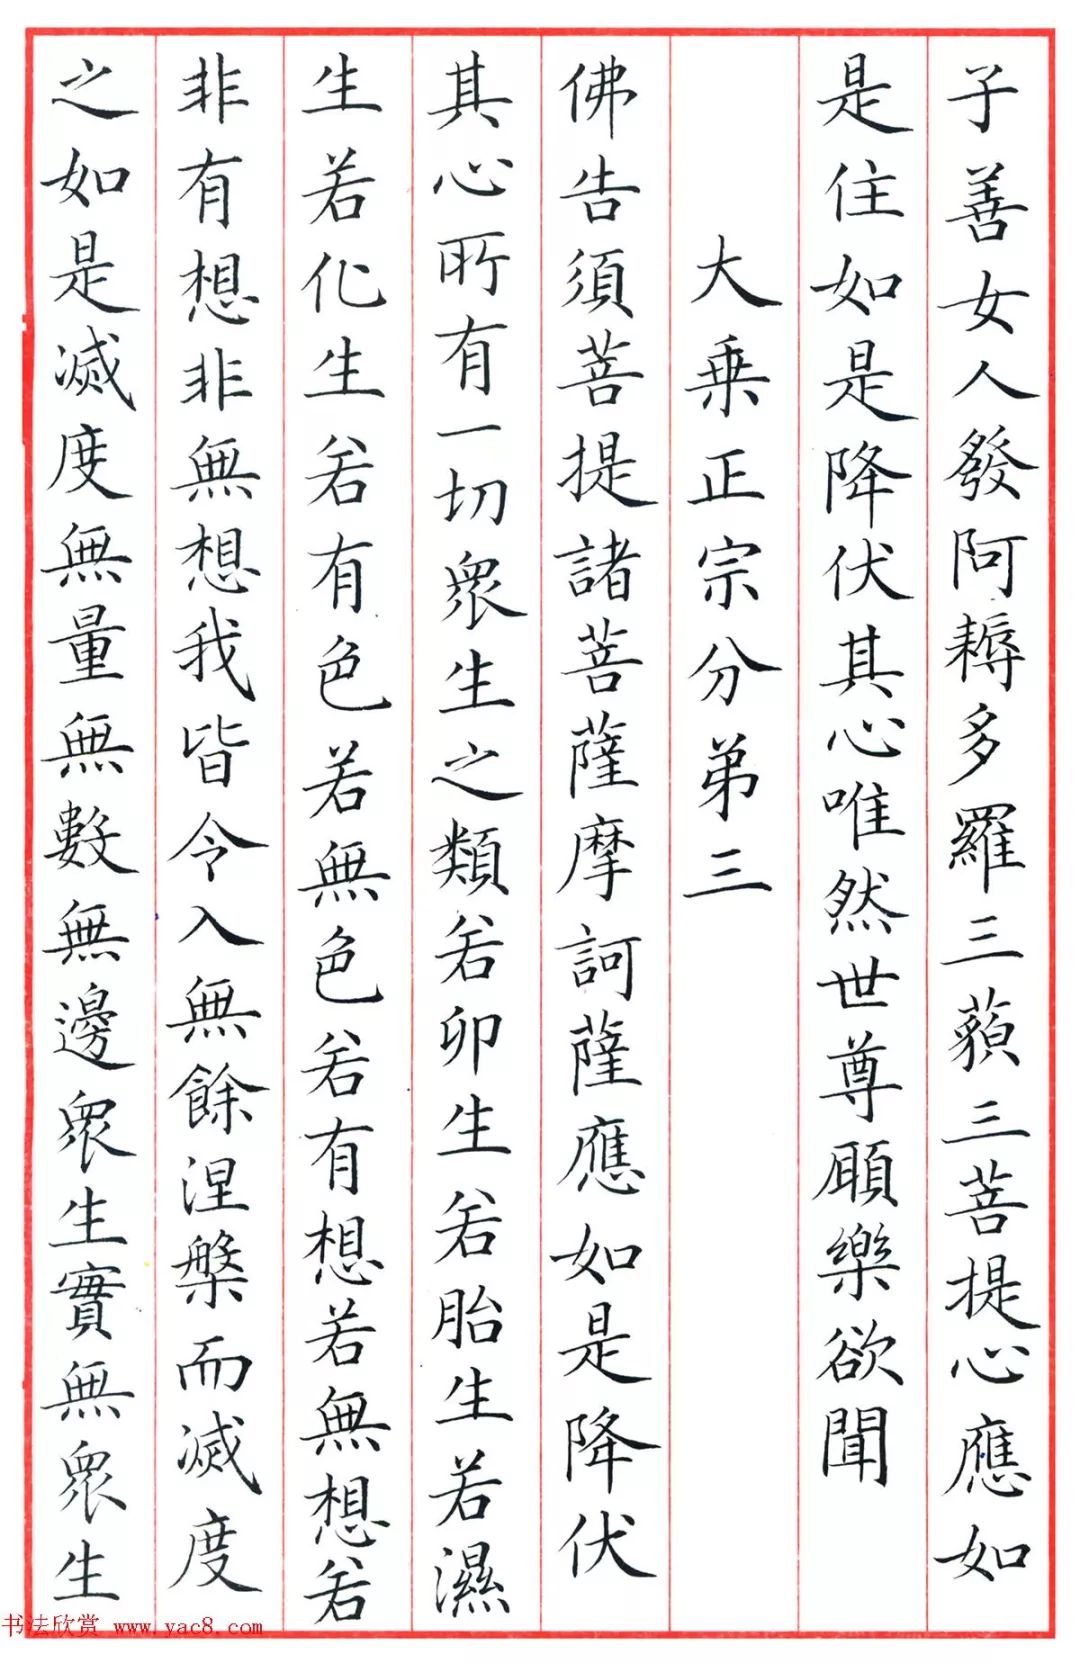 子善女人發阿耨多羅三藐三菩提心應如
是住如是降伏其心唯然世尊願樂欲聞
大乗正宗分弟三
佛告須菩提諸菩薩摩訶薩應如是降伏
其心所有一切眾生之類若卵生若胎生若濕
生若化生若有色若無色若有想若無想若
非有想非無想我皆令入無餘涅槃而滅度
之如是滅度無量無數無邊眾生實無眾生
书法欣赏 www.yac8.com